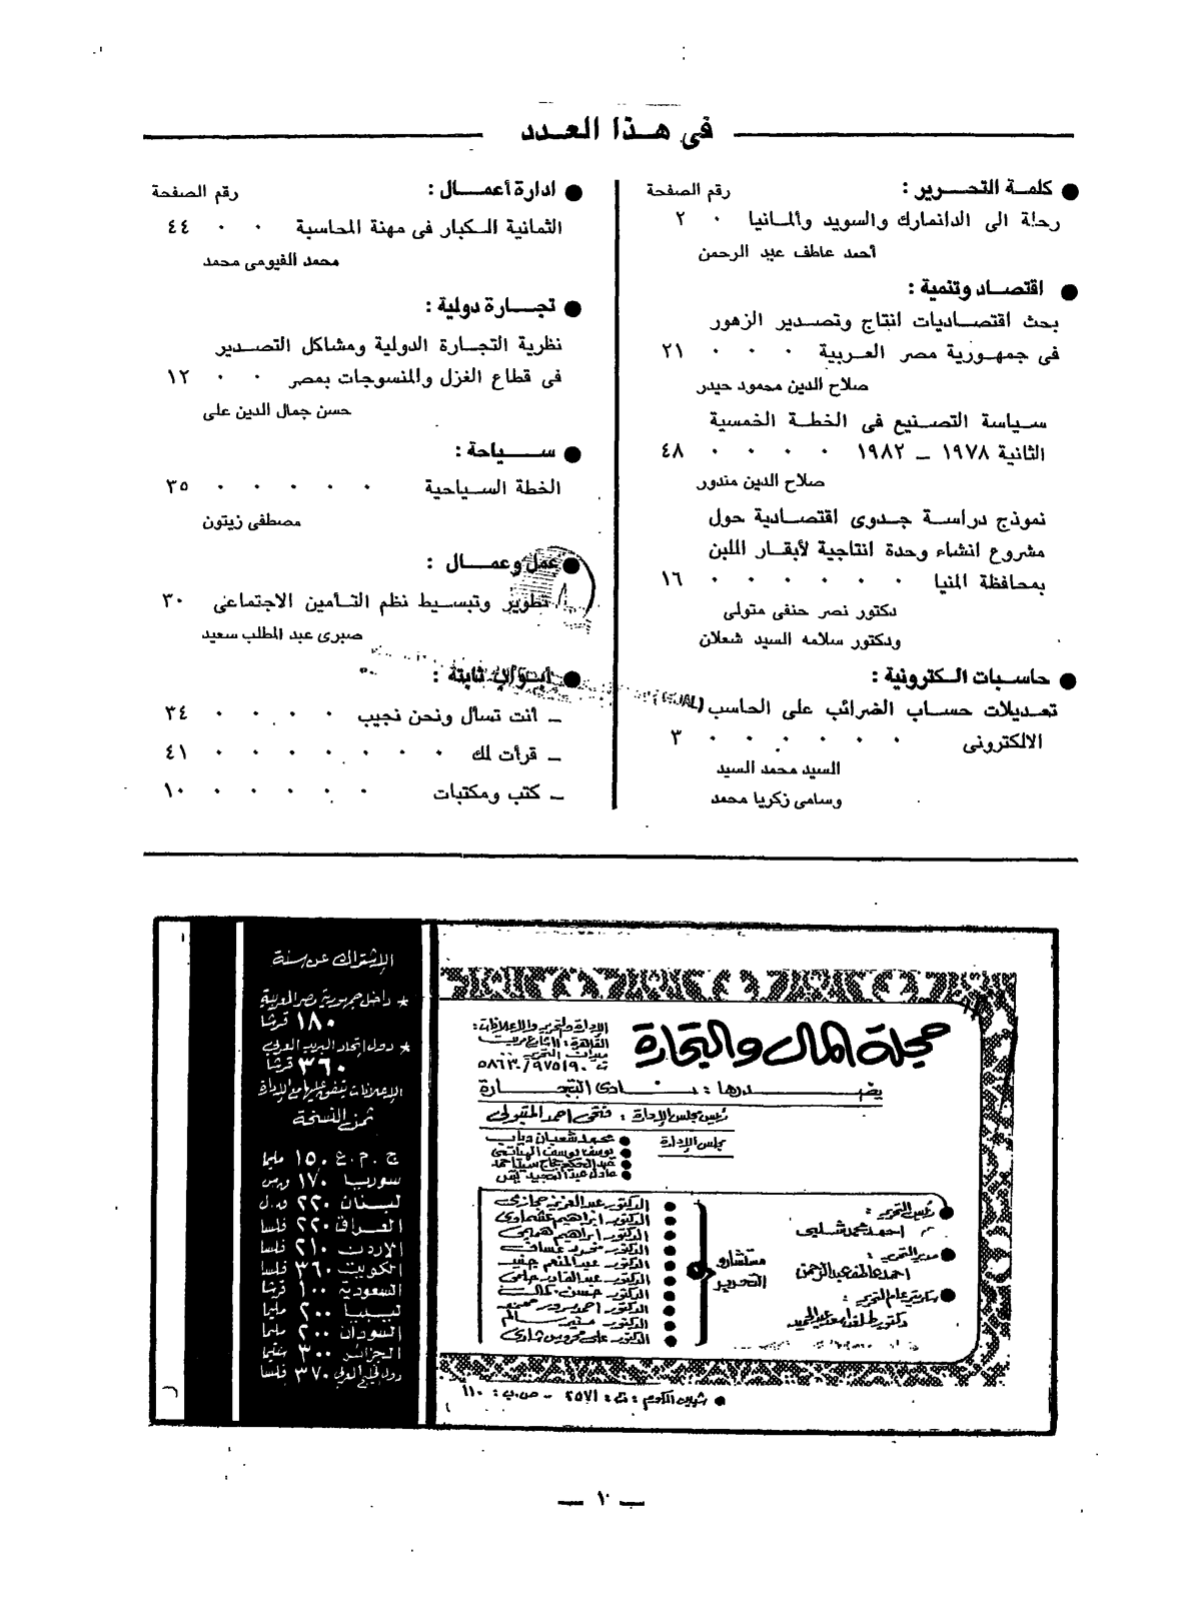 فى هـذا العـدد
● كلمـة التحـرير : رقم الصفحة
رحلة الى الدانمارك والسويد وألمـانيا ٠ ٢
أحمد عاطف عبد الرحمن
● اقتصـاد وتنمية :
بحث اقتصـاديات انتاج وتصـدير الزهور
فى جمهـورية مصر العـربية ٠ ٠ ٠ ٢١
صلاح الدين محمود حيدر
سـياسة التصـنيع فى الخطـة الخمسية
الثانية ١٩٧٨ ــ ١٩٨٢ ٠ ٠ ٠ ٠ ٤٨
صلاح الدين مندور
نموذج دراسـة جـدوى اقتصـادية حول
مشروع انشاء وحدة انتاجية لأبقـار اللبن
بمحافظة المنيا ٠ ٠ ٠ ٠ ٠ ٠ ١٦
دكتور نصر حنفى متولى
ودكتور سلامه السيد شعلان
● حاسـبات الـكترونية :
تعـديلات حسـاب الضرائب على الحاسب
الالكترونى ٠ ٠ ٠ ٠ ٠ ٠ ٣
السيد محمد السيد
وسامى زكريا محمد
● ادارة أعمـال : رقم الصفحة
الثمانية الـكبار فى مهنة المحاسبة ٠ ٠ ٤٤
محمد الفيومى محمد
● تجـارة دولية :
نظرية التجـارة الدولية ومشاكل التصـدير
فى قطاع الغزل والمنسوجات بمصر ٠ ٠ ١٢
حسن جمال الدين على
● سـياحة :
الخطة السـياحية ٠ ٠ ٠ ٠ ٠ ٣٥
مصطفى زيتون
● عمل وعمـال :
تطوير وتبسـيط نظم التـأمين الاجتماعى ٣٠
صبرى عبد المطلب سعيد
● أبـواب ثابتة :
ــ أنت تسأل ونحن نجيب ٠ ٠ ٠ ٠ ٣٤
ــ قرأت لك ٠ ٠ ٠ ٠ ٠ ٠ ٠ ٤١
ــ كتب ومكتبات ٠ ٠ ٠ ٠ ٠ ١٠
مجلة المال والتجارة
الإدارة والتحرير والإعلانات :
ت ٩٧٥١٩٠ / ٥٨٦٣٠
يصـدرها : نـادى التجـارة
رئيس مجلس الإدارة : فتحى احمد المتبولى
مجلس الإدارة
● محمد شعبان دياب
● رئيس التحرير :
احمد محمد شلبى
● مدير التحرير :
احمد عاطف عبد الرحمن
● سكرتير عام التحرير :
مستشارو
التحرير
● الدكتور عبد العزيز حجازى
● الدكتور ابراهيم عشماوى
● الدكتور عبد القادر حاتم
● شبين الكوم : ت : ٢٥٧١ - ص.ب : ١١٠
الإشتراك عن سنة
★ داخل جمهورية مصر العربية
١٨٠ قرشا
★ دول اتحاد البريد العربى
٣٦٠ قرشا
الإعلانات يتفق عليها مع الإدارة
ثمن النسخة
ج . م . ع ١٥٠ مليما
سوريا ١٧٠ ق.س
لبنان ٢٢٠ ق.ل
العراق ٢٢٠ فلسا
الأردن ٢١٠ فلسا
الكويت ٣٦٠ فلسا
السعودية ١٠٠ قرشا
ليبيا ٢٠٠ مليما
السودان ٢٠٠ مليما
الجزائر ٣٠٠ سنتيما
دول الخليج العربى ٣٧٠ فلسا
ــ ١٠ ــ